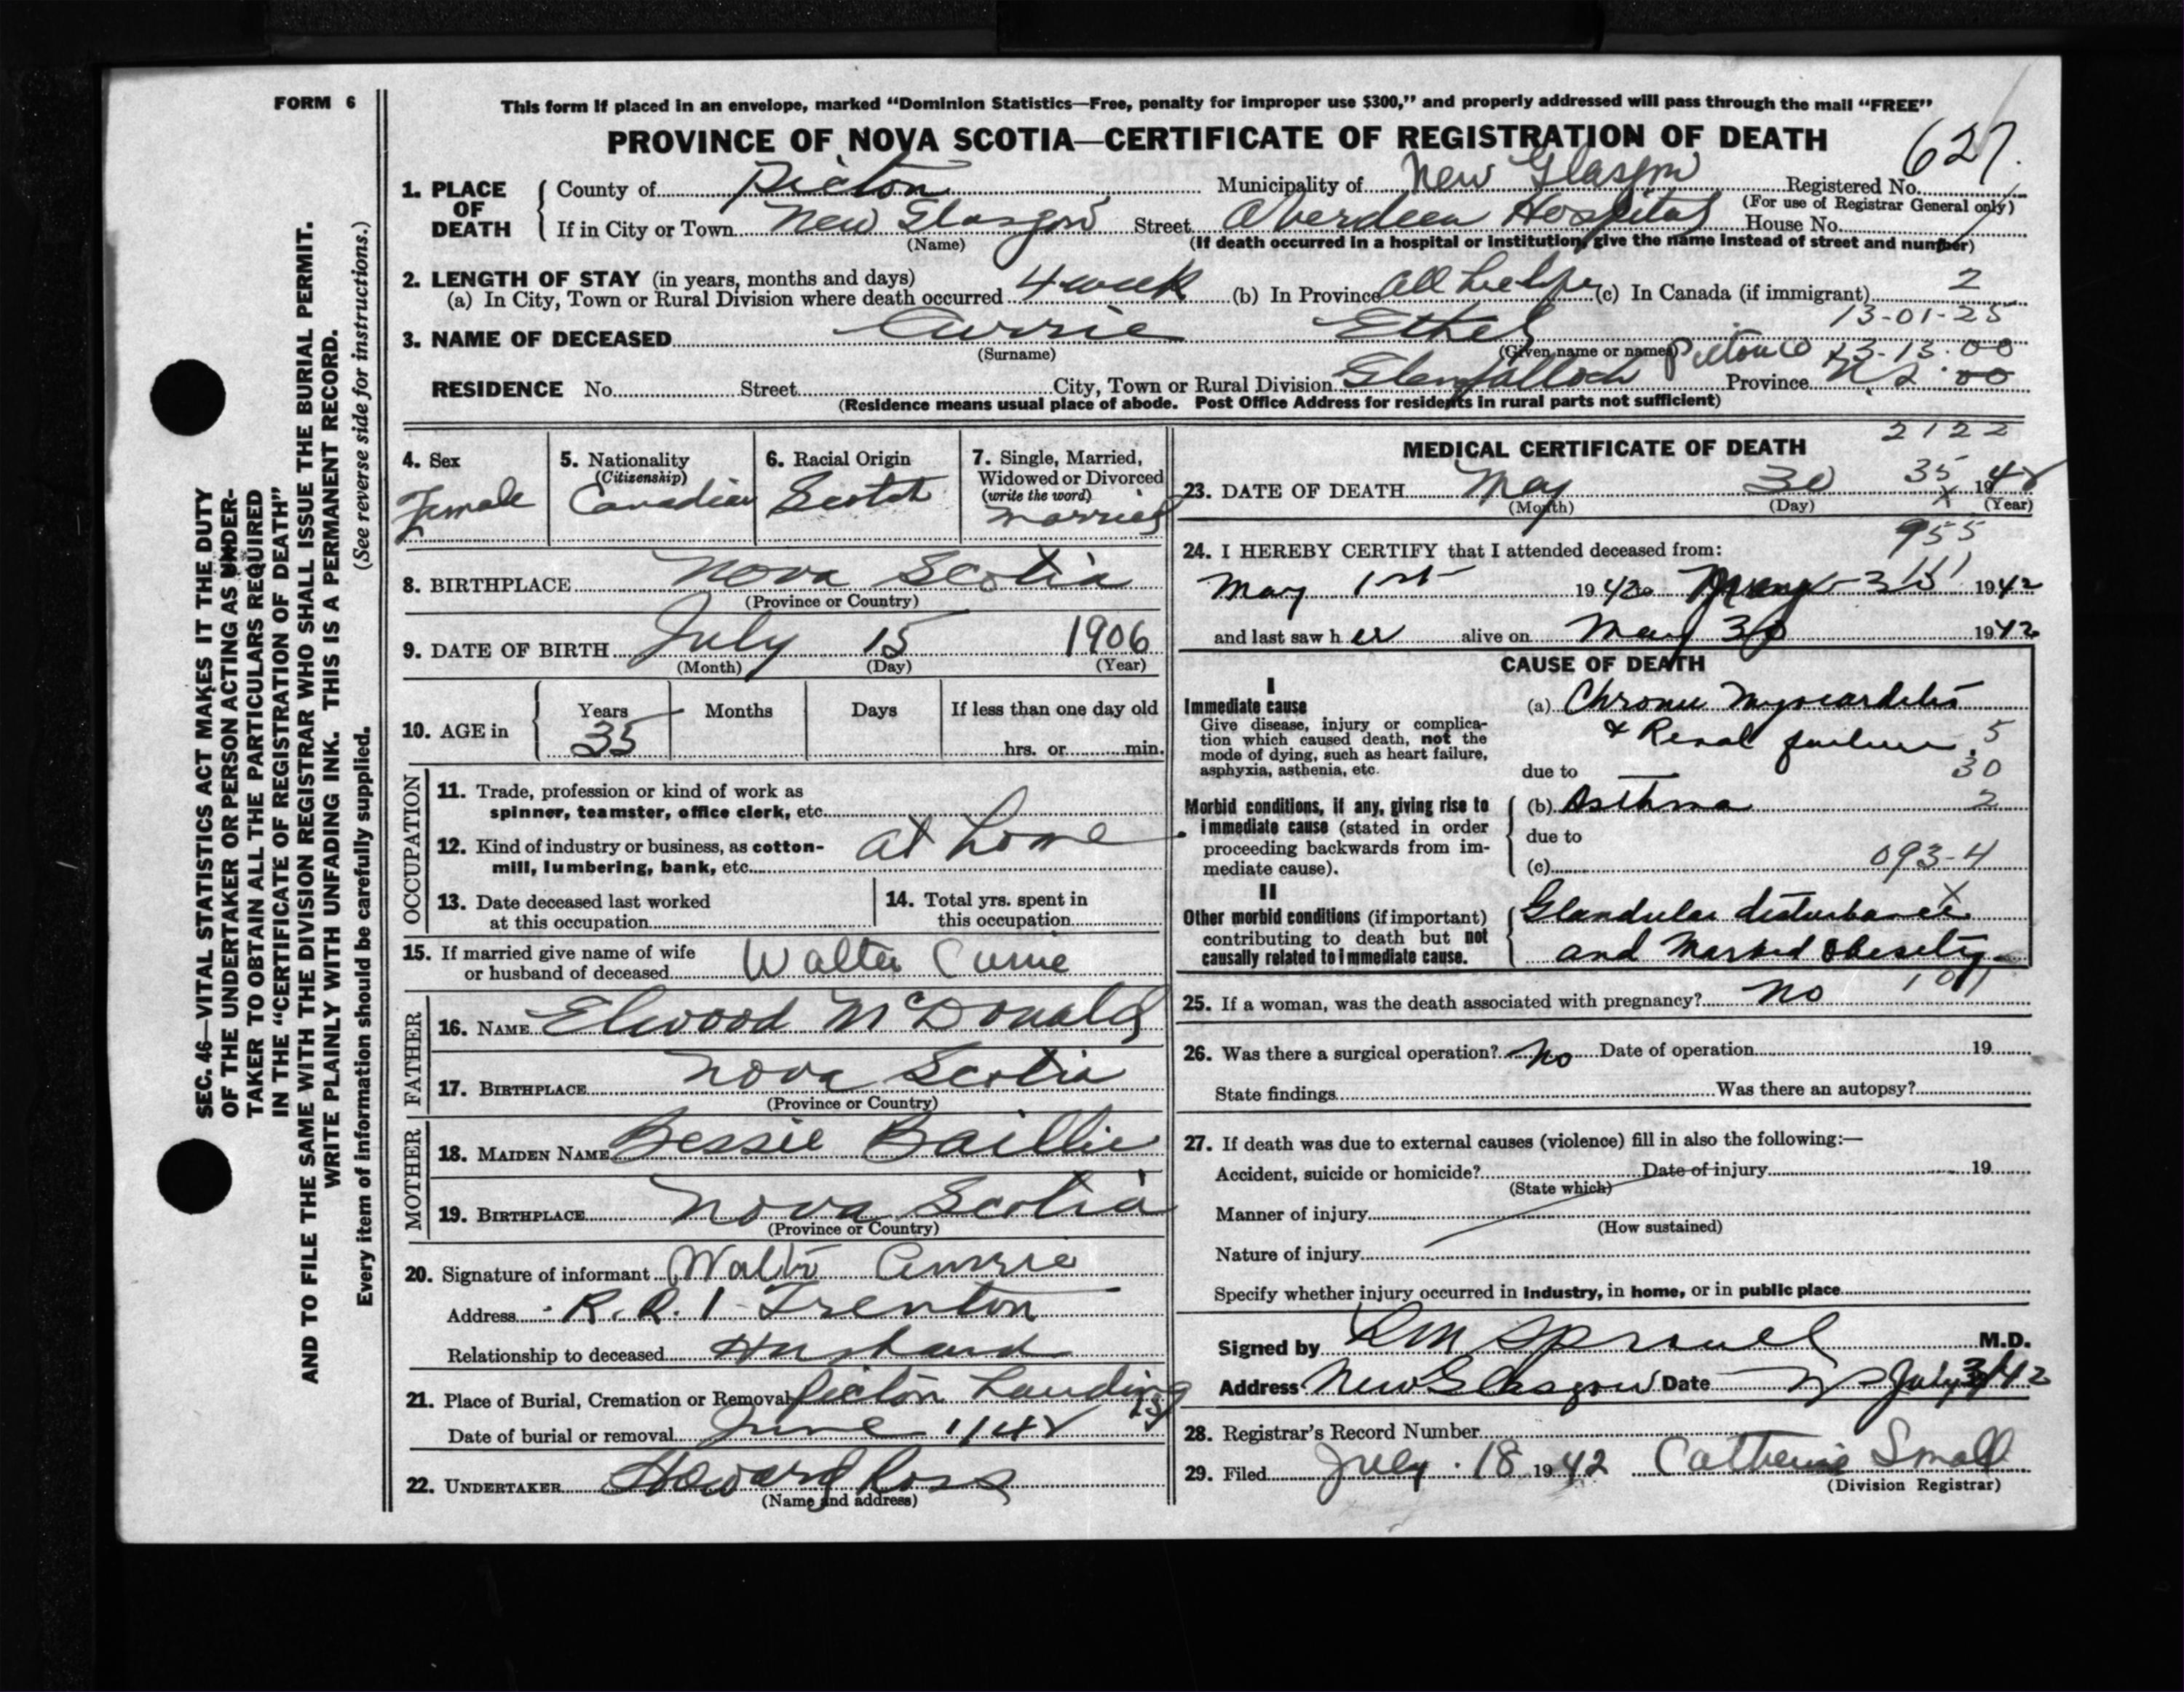 FORM 6
This form if placed in an envelope, marked “Dominion Statistics—Free, penalty for improper use $300,” and properly addressed will pass through the mail “FREE”
PROVINCE OF NOVA SCOTIA—CERTIFICATE OF REGISTRATION OF DEATH
627.
1. PLACE OF DEATH County of Pictou Municipality of New Glasgow Registered No.
(For use of Registrar General only)
If in City or Town New Glasgow Street Aberdeen Hospital House No.
(Name) (If death occurred in a hospital or institution, give the name instead of street and number)
2. LENGTH OF STAY (in years, months and days)
(a) In City, Town or Rural Division where death occurred 4 week (b) In Province all her life (c) In Canada (if immigrant) 2
13-01-25
3. NAME OF DECEASED Currie Ethel
(Surname) (Given name or names) Pictou Co 13-13-00
RESIDENCE No. Street City, Town or Rural Division Glenfalloch Province N.S. 00
(Residence means usual place of abode. Post Office Address for residents in rural parts not sufficient)
4. Sex Female
5. Nationality (Citizenship) Canadian
6. Racial Origin Scotch
7. Single, Married, Widowed or Divorced (write the word) Married
8. BIRTHPLACE Nova Scotia
(Province or Country)
9. DATE OF BIRTH July 15 1906
(Month) (Day) (Year)
10. AGE in Years 35 Months Days If less than one day old
hrs. or min.
OCCUPATION
11. Trade, profession or kind of work as
spinner, teamster, office clerk, etc.
12. Kind of industry or business, as cotton- at home
mill, lumbering, bank, etc.
13. Date deceased last worked
at this occupation
14. Total yrs. spent in
this occupation
15. If married give name of wife
or husband of deceased Walter Currie
FATHER
16. NAME Elwood McDonald
17. BIRTHPLACE Nova Scotia
(Province or Country)
MOTHER
18. MAIDEN NAME Bessie Baillie
19. BIRTHPLACE Nova Scotia
(Province or Country)
20. Signature of informant Walter Currie
Address R.R. 1 Trenton
Relationship to deceased Husband
21. Place of Burial, Cremation or Removal Pictou Landing
Date of burial or removal June 1/42
22. UNDERTAKER Howard Ross
(Name and address)
2122
MEDICAL CERTIFICATE OF DEATH
35
23. DATE OF DEATH May 30 1942
(Month) (Day) (Year)
955
24. I HEREBY CERTIFY that I attended deceased from:
May 1st 1942 to May 31 1942
and last saw her alive on May 30 1942
CAUSE OF DEATH
I
Immediate cause
Give disease, injury or complica-
tion which caused death, not the
mode of dying, such as heart failure,
asphyxia, asthenia, etc.
(a) Chronic Myocarditis
& Renal failure 5
due to — 30
Morbid conditions, if any, giving rise to
immediate cause (stated in order
proceeding backwards from im-
mediate cause).
(b) Asthma 2
due to
(c) 093-4
II
Other morbid conditions (if important)
contributing to death but not
causally related to immediate cause.
Glandular disturbance X
and Marked obesity
25. If a woman, was the death associated with pregnancy? no
26. Was there a surgical operation? No Date of operation 19
State findings Was there an autopsy?
27. If death was due to external causes (violence) fill in also the following:—
Accident, suicide or homicide? Date of injury 19
(State which)
Manner of injury
(How sustained)
Nature of injury
Specify whether injury occurred in industry, in home, or in public place
Signed by Sproull M.D.
Address New Glasgow Date July 3/42
28. Registrar’s Record Number
29. Filed July 18 1942 Catherine Small
(Division Registrar)
SEC. 46—VITAL STATISTICS ACT MAKES IT THE DUTY
OF THE UNDERTAKER OR PERSON ACTING AS UNDER-
TAKER TO OBTAIN ALL THE PARTICULARS REQUIRED
IN THE “CERTIFICATE OF REGISTRATION OF DEATH”
AND TO FILE THE SAME WITH THE DIVISION REGISTRAR WHO SHALL ISSUE THE BURIAL PERMIT.
WRITE PLAINLY WITH UNFADING INK. THIS IS A PERMANENT RECORD.
Every item of information should be carefully supplied. (See reverse side for instructions.)